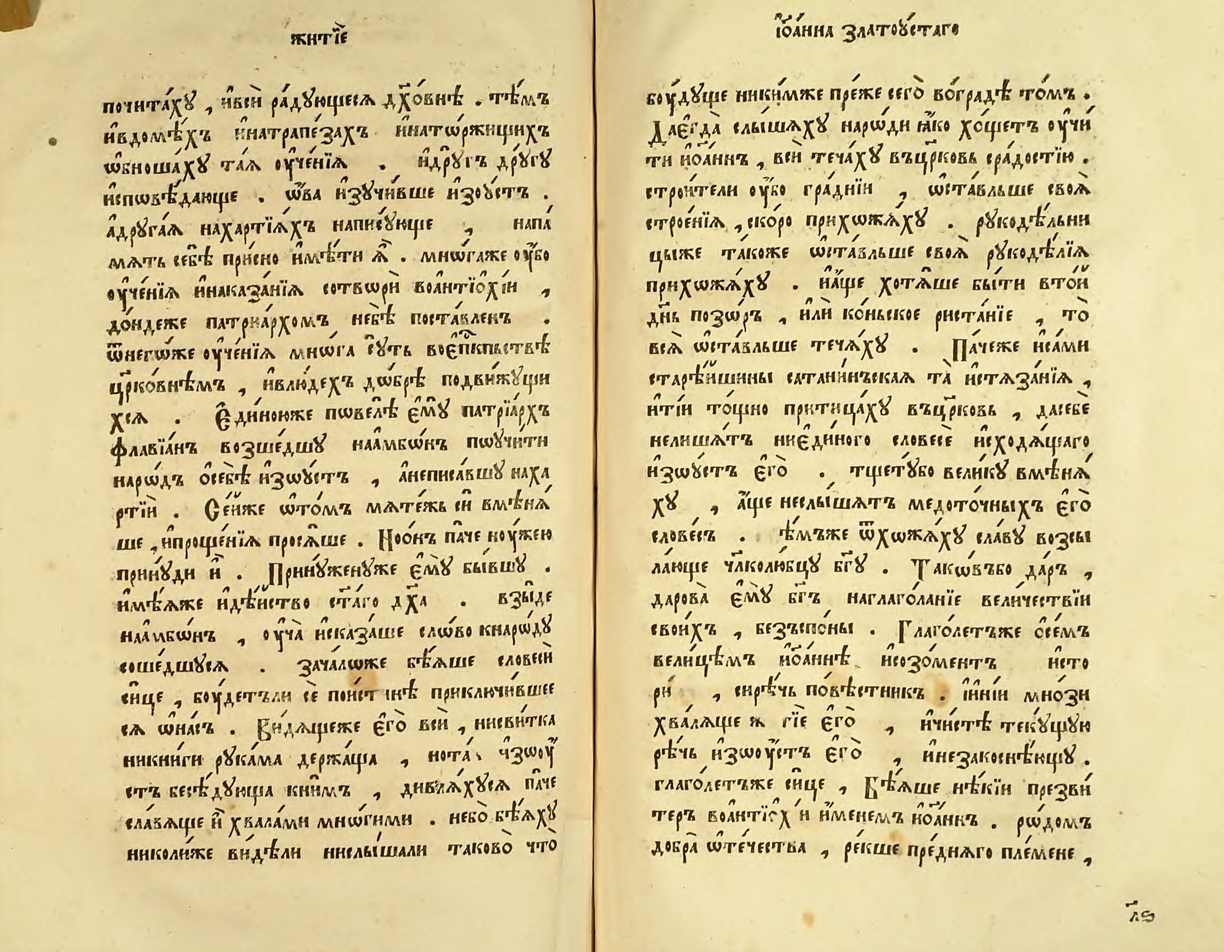 житїѐ
почита́хꙋ , и҆вси̑ ра́дꙋющесѧ дх҃о́внѣ . тѣ́мъ
и҆вдомѣ́хъ и҆натрапе́захъ и҆натѡржищихъ
ѡ҆бноша́хꙋ та́ѧ ᲂу҆че́нїѧ . и҆дрꙋ́гъ дрꙋ́гꙋ
и҆сповѣ́дающе . ѡ҆́ва и҆зꙋчи́вше и҆зᲂу́стъ .
а҆дрꙋга́ѧ наха́ртїѧхъ напи́сꙋюще , напа́
мѧть себѣ̀ при́сно и҆мѣ́ти ѧ҆̀ . мнѡ́гаже ᲂу҆́бо
ᲂу҆че́нїѧ и҆наказа́нїѧ сотворѝ воа҆нтїо́хїи ,
до́ндеже патрїа́рхомъ небѣ̀ поста́вленъ .
ѿнегѡ́же ᲂу҆че́нїѧ мнѡ́га сꙋ́ть воє҆пкпьствѣ
цр҃ко́внѣмъ , и҆влю́дехъ дѡ́брѣ подви́жꙋщи
хсѧ . Є҆ди́ною́же повелѣ̀ є҆мꙋ̀ патрїа́рхъ
флавїа́нъ возше́дшꙋ наа҆мбѡ́нъ поᲂучи́ти
наро́дъ ѡ҆себѣ̀ и҆зᲂу́стъ , а҆неписа́вшꙋ наха́
ртїи . Се́йже ѡ҆то́мъ мѧте́жь сѝ вмѣнѧ́
ше , и҆проще́нїѧ просѧ́ше . Ноо҆́нъ па́че нᲂу́жею
принꙋ́ди и҆̀ . Принꙋ́женꙋже є҆мꙋ̀ бы́вшꙋ .
и҆мѣ́ѧже и҆дѣ́йство ст҃а́го дх҃а . взы́де
наа҆мбѡ́нъ , ᲂу҆ча̀ и҆ска́заше сло́во кнаро́дꙋ
соше́дшꙋсѧ . зача́ложе бѣ́ѧше словесѝ
си́це , бᲂу́детъли сѐ пои́стинѣ приключи́вшее
сѧ ѡ҆на́съ . Ви́дѧщеже є҆го̀ всѝ , нисви́тка
никни́ги рꙋка́ма держа́ща , нота́ и҆зᲂу
стъ бесѣ́дꙋюща кни́мъ , дивлѧ́хꙋсѧ па́че
сла́вѧще и҆̀ хвала́ми мно́гими . небо бѣ́ѧхꙋ
николи́же ви́дѣли нислы́шали таково̀ что̀
і҆ѡа́нна златоꙋ́стаго
бᲂу́дꙋще ники́мже пре́же сего̀ во́градѣ то́мъ .
Дає҆гда̀ слы́шѧхꙋ наро́ди ꙗ҆́ко хо́щетъ ᲂу҆чи́
ти и҆ѡа́ннъ , всѝ теча́хꙋ въцр҃ковь сра́достїю .
строи́тели ᲂу҆́бо гра́днїи , ѡ҆ста́вльше своѧ̀
строе́нїѧ , ско́ро прихожѧ́хꙋ . рꙋкодѣ́льни
цыже та́коже ѡ҆ста́вльше своѧ̀ рꙋкодѣ́лїѧ
прихожѧ́хꙋ . и҆а́ще хотѧ́ше бы́ти вто́й
дн҃ь позо́ръ , и҆лѝ ко́ньское риста́нїе , то̀
всѧ̀ ѡ҆ста́вльше течѧ́хꙋ . Па́чеже и҆са́ми
старѣ́йшины сатани́нъскаѧ та̀ и҆стѧза́нїѧ ,
и҆тїѝ то́щно притица́хꙋ въцр҃ковь , дасебѐ
нелиша́тъ ниє҆ди́ного словесѐ и҆сходѧ́щаго
и҆зᲂу́стъ є҆го̀ . тщетꙋ́бо вели́кꙋ вмѣнѧ́
хꙋ , а҆́ще неслы́шѧтъ медото́чныхъ є҆го̀
слове́съ . тѣ́мъже ѿхожѧ́хꙋ сла́вꙋ возсы
ла́юще чл҃колю́бцꙋ бг҃ꙋ . Тако́въбо да́ръ ,
дарова̀ є҆мꙋ̀ бг҃ъ наглаго́ланїе вели́чествїи
свои́хъ , безъспо́ны . Глаго́летъже ѡ҆се́мъ
вели́цѣмъ и҆ѡа́ннѣ и҆созо́ментъ и҆сто
ри́ , сирѣ́чь повѣ́стникъ . и҆ні́и мно́зи
хва́лѧще гл҃ѐ є҆го̀ , и҆чи́стѣ текꙋ́щꙋю
рѣ́чь и҆зᲂу́стъ є҆го̀ , и҆незакоснѣ́ющꙋ .
глаго́летъже си́це , Бѣ́ѧше нѣ́кїи презви́
теръ воа҆нтїо́хїи и҆́менемъ и҆ѡа́ннъ . ро́домъ
добра̀ ѡ҆те́чества , ре́кше пре́днѧго пле́мене ,
л҃ѳ